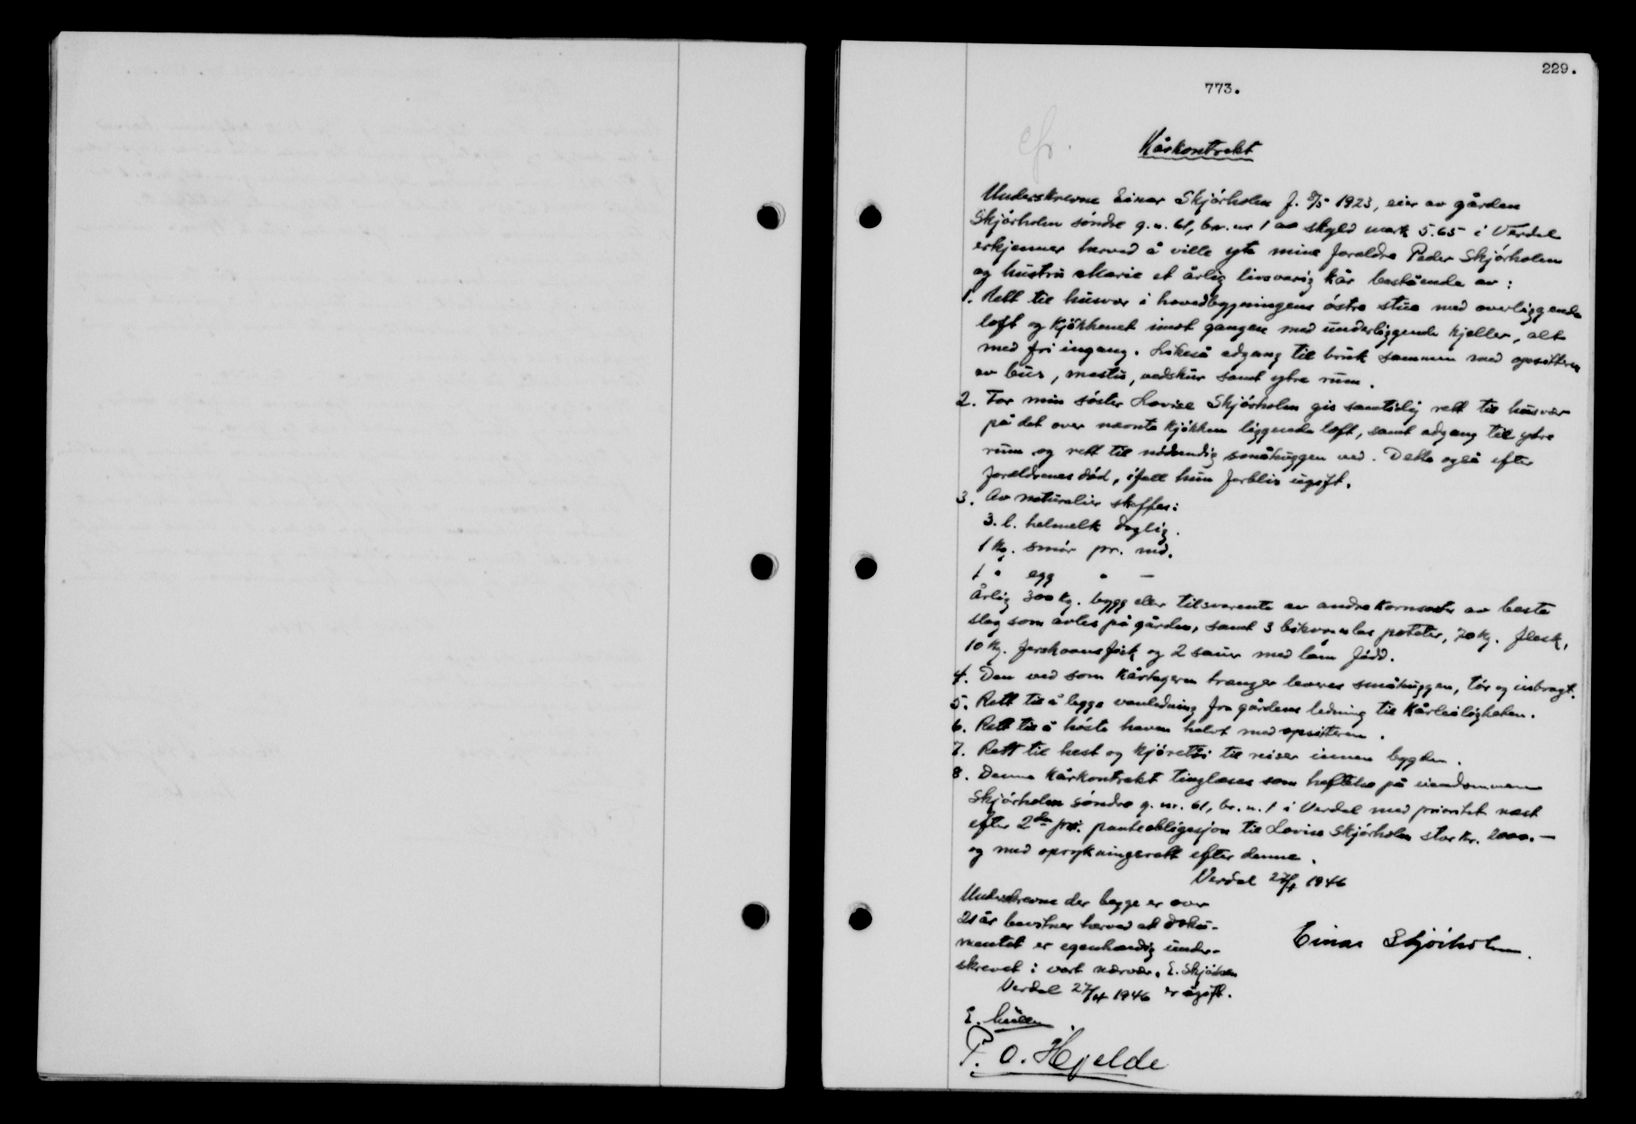 229.
773.
Kårkontrakt
Underskrevne Einar Skjørholm f. 1923, eier av gården
Skjørholm søndre g.n. 61, br. nr 1 av skyld mark 5.65 i Verdal
erkjenner herved å ville yte mine foreldre Peder Skjørholm
og hustru Marie et årlig livsvarig kår bestående av:
1. Rett til husvær i hovedbygningens østre stue med overliggende
loft og kjøkkenet imot gangen med underliggende kjeller, alt
med fri ingang. Likeså adgang til bruk sammen med opsitteren
av bur, mastu, vedskur samt ytre rum.
2. For min søster Lovise Skjørholm gis samtidig rett til husvær
på det over nevnte kjøkken liggende loft, samt adgang til ytre
rum og rett til nødvendig småhuggen ved. Dette også efter
foreldrenes død, ifall hun forblir ugift.
3. Av naturalier skaffes:
3. l. helmelk daglig.
1 kg. smør pr. md.
1 " egg " —
Årlig 300 kg. bygg eller tilsvarende av andre kornsorter av beste
slag som avles på gården, samt 3 poteter, 70 kg. flesk,
10 kg. ferskvarefisk og 2 sauer med lam født.
4. Den ved som kårtageren trenger leveres småhuggen, tør og inbragt.
5. Rett til å legge vanledning fra gårdens ledning til kårleiligheten.
6. Rett til å høste haven halvt med opsitteren.
7. Rett til hest og kjøretøi til reiser innen bygden.
8. Denne kårkontrakt tinglæses som heftelse på eiendommen
Skjørholm søndre g. nr. 61, br. n. 1 i Verdal med prioritet næst
efter 2den pri. panteobligasjon til Lovise Skjørholm stor kr. 2000.—
og med oprykningsrett efter denne.
Verdal 27/4 1946
Underskrevne der begge er over
21 år bevitner herved at doku-
mentet er egenhendig under-
skrevet i vort nærvær. E. Skjørholm
Verdal 27/4 1946 er ugift.
Einar Skjørholm.
E.
P. O. Hjelde